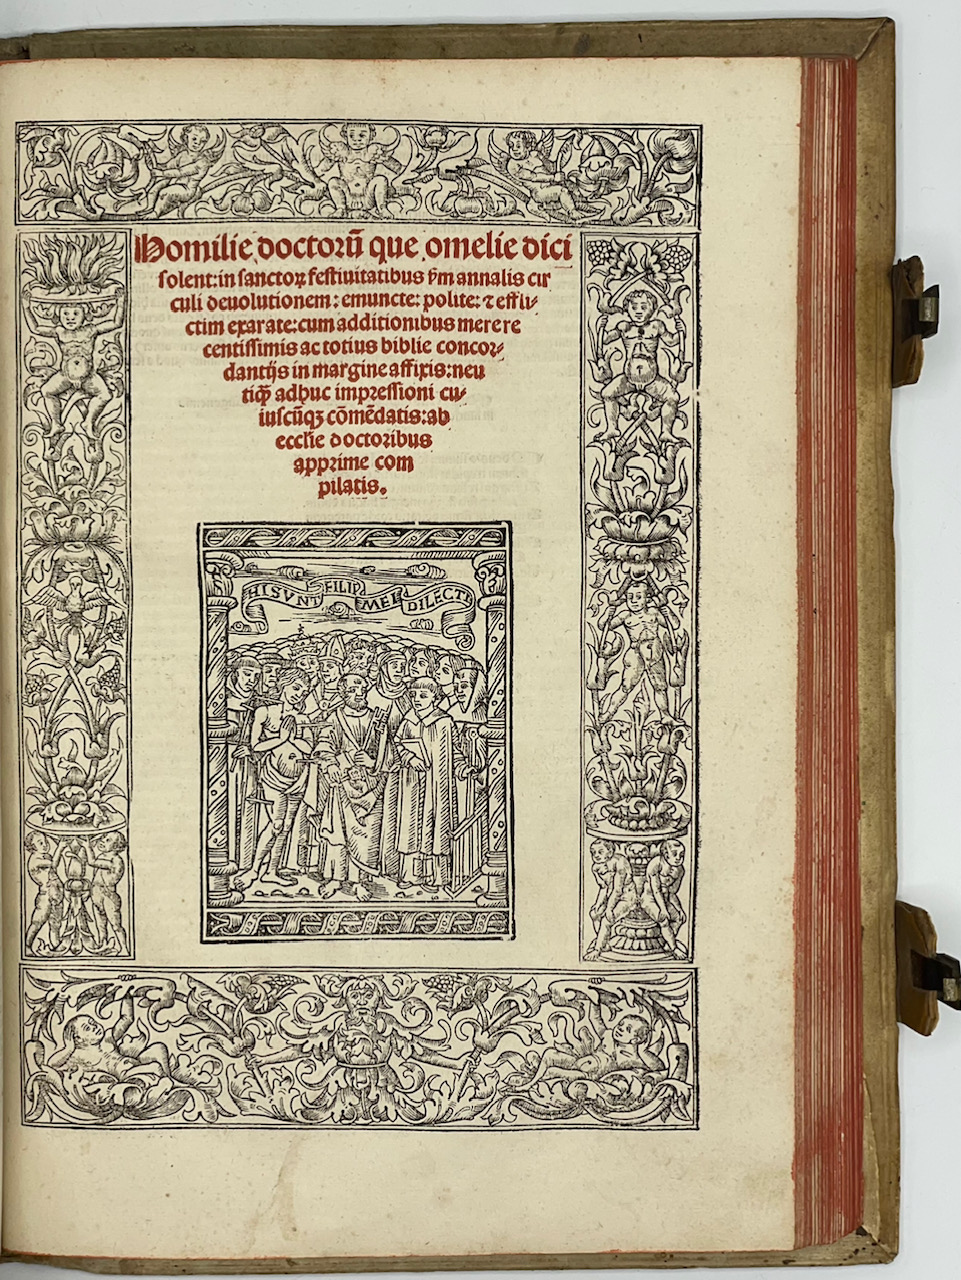 Homilie doctorū que omelie dici
solent: in sanctoꝝ festiuitatibus ẜm annalis cir
culi deuolutionem: emuncte: polite: ⁊ effli-
ctim exarate: cum additionibus mere re
centissimis ac totius biblie concor-
dantijs in margine affixis: neu
tiꝙ adhuc impressioni cu-
iuscūqꝫ cōmēdatis: ab
ecclie doctoribus
apprime com
pilatis.
HI SVNT FILII MEI DILECTI